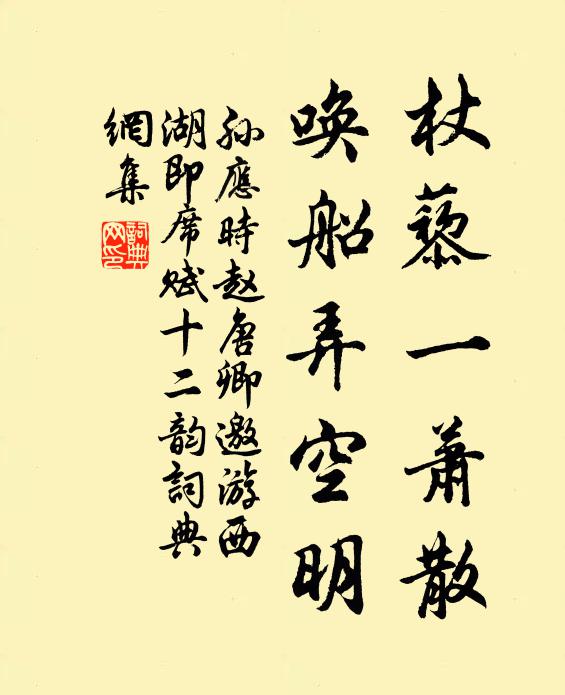 杖藜一萧散
唤船弄空明
孙應時赵唐卿邀游西
湖即席赋十二韵詞典
網集
詞典
网印